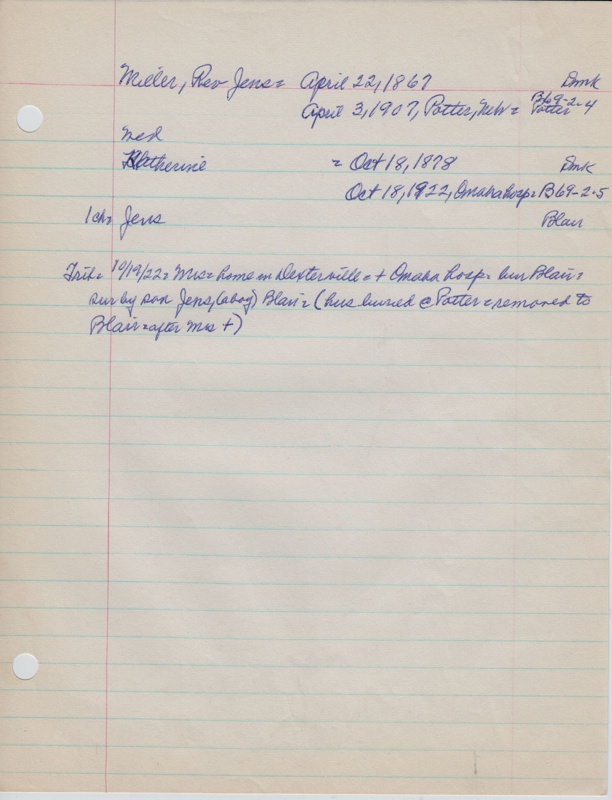 Miller, Rev Jens = April 22, 1867 Dmk
April 3, 1907, Potter, Neb = Potter B69-2-4
med
Katherine = Oct 18, 1878 Dmk
Oct 18, 1922, Omaha hosp = B69-2-5
1 ch = Jens Blair
Trib = 10/19/22 = Mrs = home in Dexterville = + Omaha hosp = bur Blair =
sur by son Jens, (abog) Blair = (hus buried @ Potter = removed to
Blair = after Mrs +)